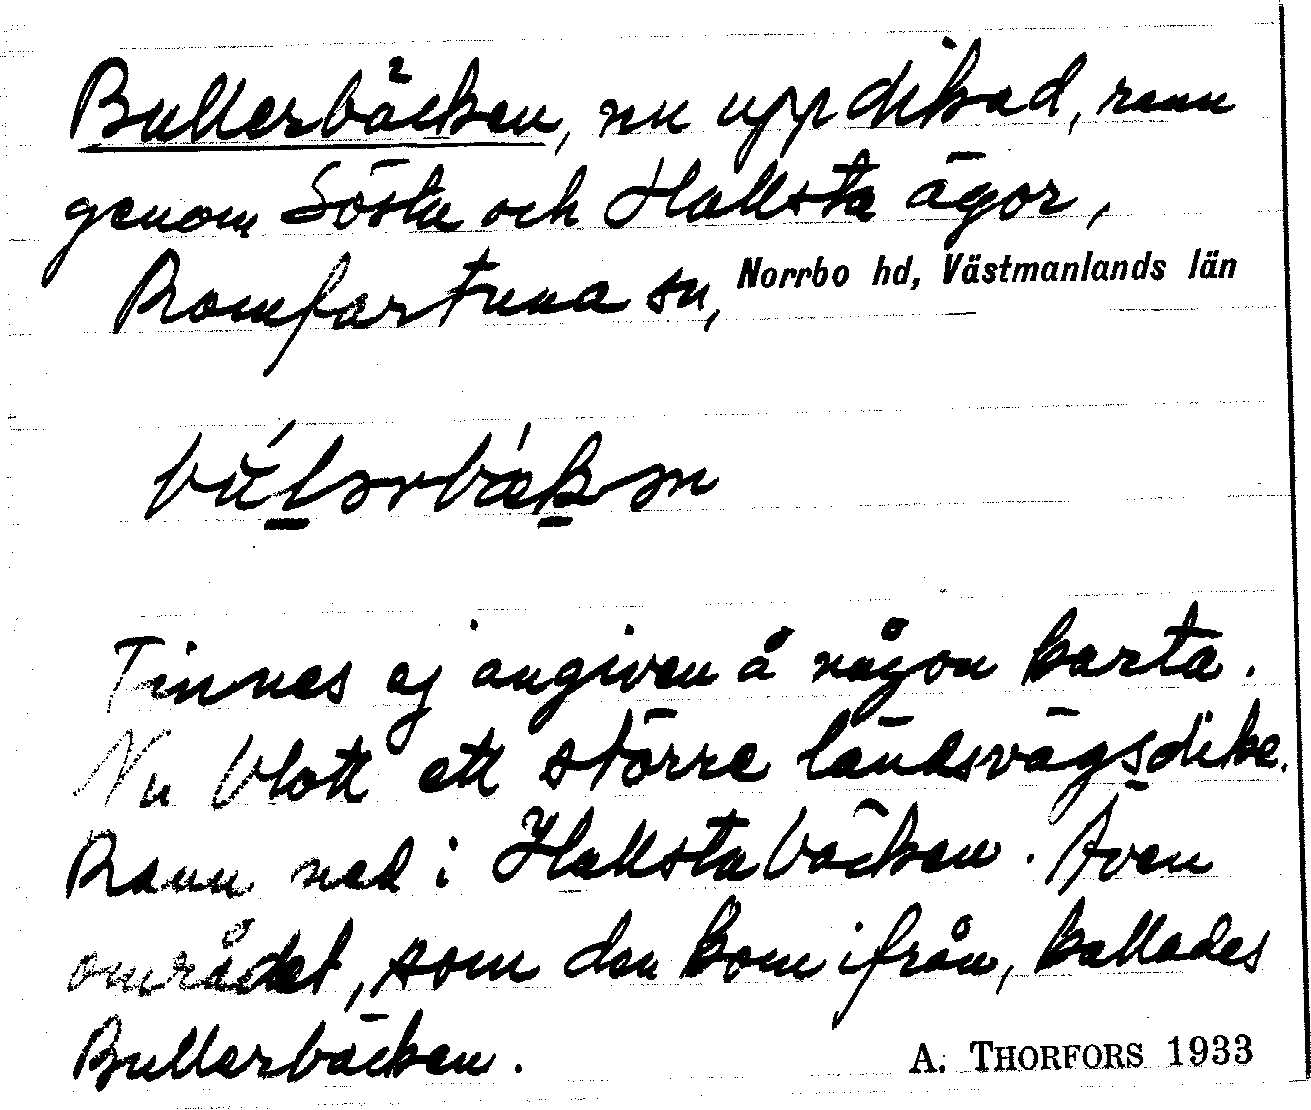 Bullerbäcken, nu uppdikad, rann
genom Sösta och Hallsta ägor,
Romfartuna sn, Norrbo hd, Västmanlands län
Finnes ej angiven å någon karta.
Nu blott ett större landsvägsdike.
Rann ned i Hallstabäcken. Även
området, som den kom ifrån, kallades
Bullerbäcken.
A. THORFORS 1933